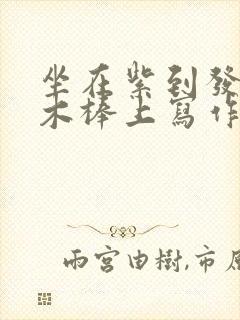 坐在紫到發
木棒上寫作
雨宮由樹,市原